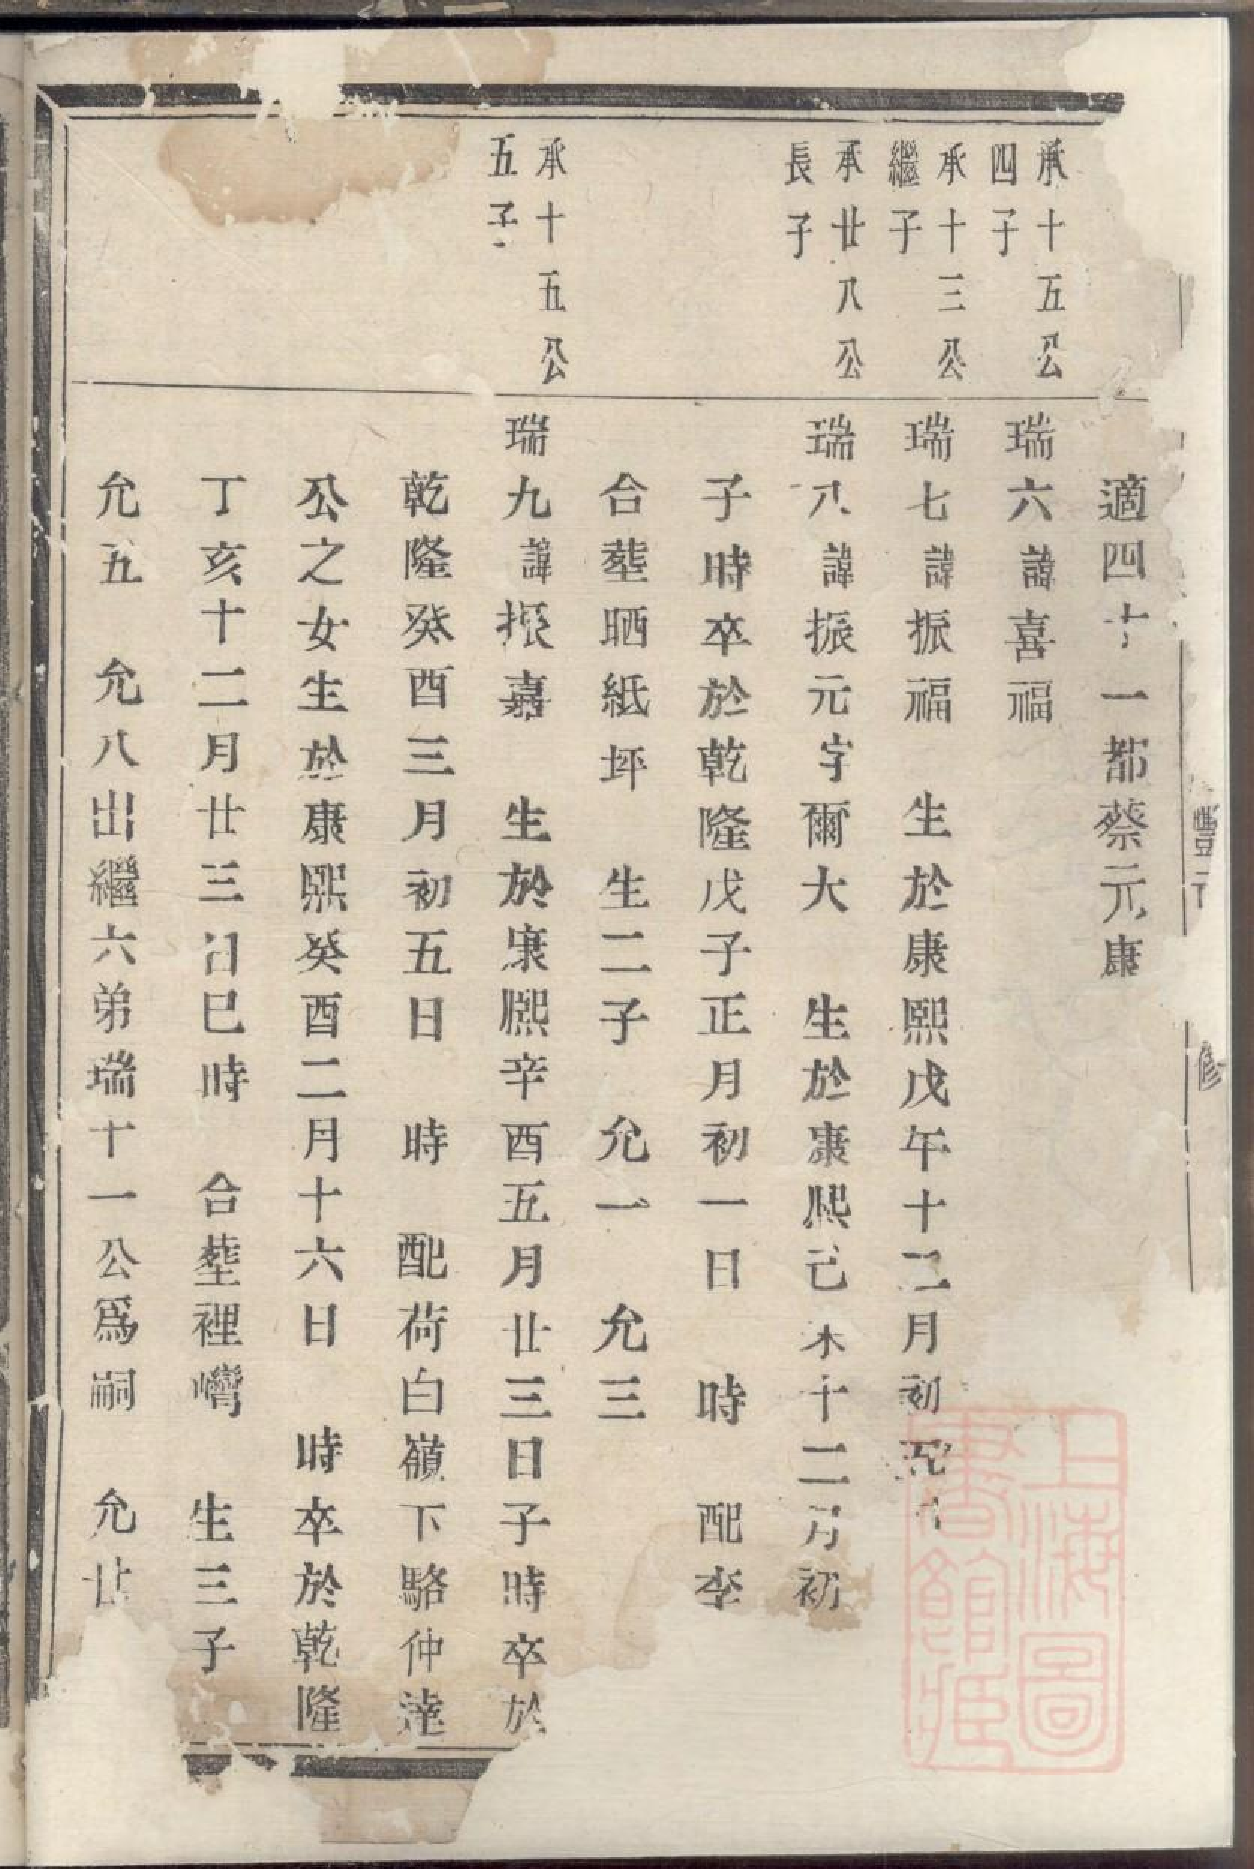 適四十一都蔡元康
承十五公
四子
瑞六諱喜福
承十三公
繼子
瑞七諱振福 生於康熙戊午十二月初
承廿八公
長子
瑞八諱振元字爾大 生於康熙己未十二月初
子時卒於乾隆戊子正月初一日 時 配李
合塟晒紙坪 生二子 允一 允三
承十五公
五子
瑞九諱振嘉 生於康熙辛酉五月廿三日子時卒於
乾隆癸酉三月初五日 時 配荷白嶺下駱仲達
公之女生於康熙癸酉二月十六日 時卒於乾隆
丁亥十二月廿三日巳時 合塟裡嶹 生三子
允五 允八出繼六弟瑞十一公爲嗣 允廿
上海圖
書館藏